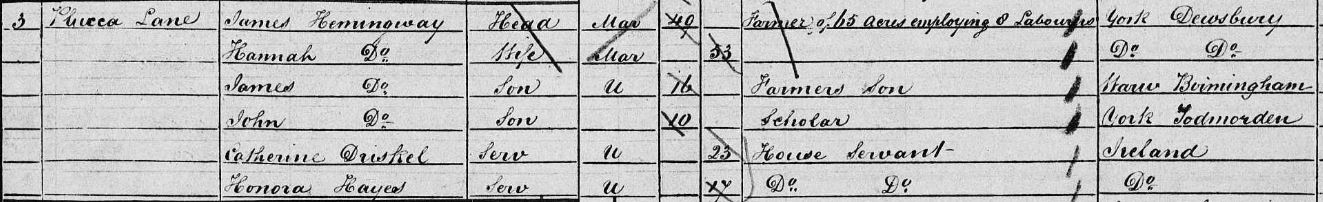 3 Plucca Lane James Hemingway Head Mar 49 Farmer of 65 Acres employing 8 Labourers York Dewsbury
Hannah Do Wife Mar 53 Do Do
James Do Son U 16 Farmers Son Warw Birmingham
John Do Son 10 Scholar York Todmorden
Catherine Driskel Serv U 23 House Servant Ireland
Honora Hayes Serv U 17 Do Do Do